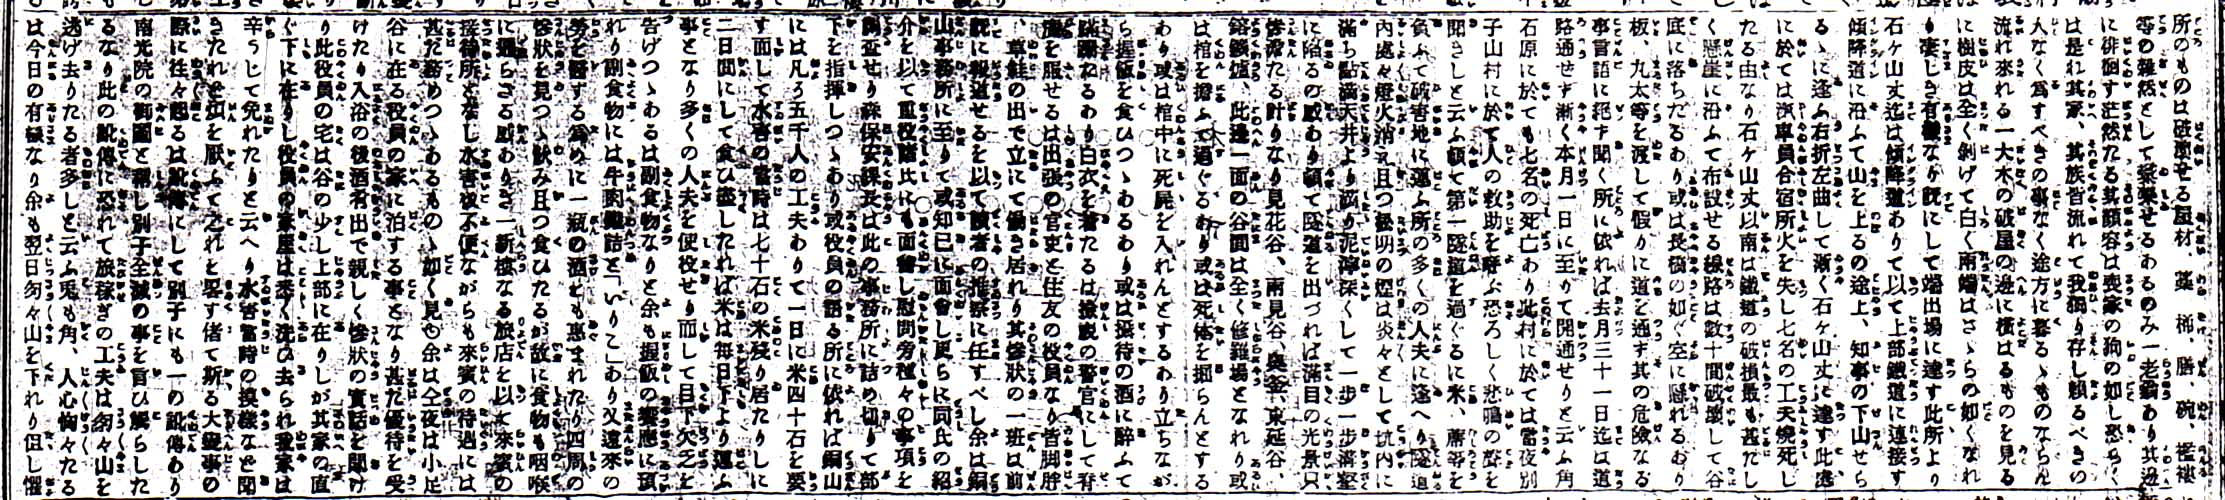 所のものは破潰せる屋材、藁、柹、膳、碗、襤褸
等の雜然として棄捨せるあるのみ一老翁あり其邊
に徘徊す茫然たる其顔容は喪家の狗の如し恐らく
は是れ其家、其族皆流れて我獨り存し賴るべきの
人なく爲すべきの事なく途方に暮るゝものならん
流れ來れる一大木の破屋の邊に橫はるものを見る
に樹皮は全く剝げて白く兩端はさゝらの如くなれ
り凄じき有樣なり既にして端出場に達す此所より
石ヶ山丈迄は傾降道ありて以て上部鐵道に連接す
傾降道に沿ふて山を上るの途上、知事の下山せら
るゝに逢ふ右折左曲して漸く石ヶ山丈に達す此處
に於ては汽車員合宿所火を失し七名の工夫燒死し
たる由なり石ヶ山丈以南は鐵道の破損最も甚だし
く懸崖に沿ふて布設せる線路は數十間破壞して谷
底に落ちたるあり或は長橋の如く空に懸れるあり
板、丸太等を渡して假りに道を通ず其の危險なる
事言語に絕す聞く所に依れば去月三十一日迄は道
路通せず漸く本月一日に至りて開通せりと云ふ角
石原に於ても七名の死亡あり此村に於ては當夜別
子山村に於て人の救助を呼ぶ恐ろしく悲鳴の聲を
聞きしと云ふ頓て第一隧道を過ぐるに米、蓆等を
負ふて破害地に運ぶ所の多くの人夫に逢へり隧道
內處々燈火消え且つ松明の煙は炎々として坑內に
滿ち點滴天井より落り泥濘深くして一步一步溝壑
に陷るの感あり頓て隧道を出づれば滿目の光景只
慘澹たる計りなり見花谷、兩見谷、奧窯、東延谷、
鎔鑛爐、此邊一面の谷間は全く修羅場となれり或
は棺を擔ふて過ぐるあり或は死體を掘らんとする
あり或は棺中に死屍を入れんとするあり立ちなが
ら握飯を食ひつゝあるあり或は接待の酒に醉ふて
蹣跚たるあり白衣を著たるは檢視の警官にして脊
廣を服せるは出張の官吏と住友の役員なり皆脚胖
、草鞋の出で立にて働き居れり其慘狀の一班は前
既に報道せるを以て讀者の推察に任すべし余は銅
山事務所に至りて或知己に面會し更らに同氏の紹
介を以て重役諸氏にも面會し慰問旁種々の事項を
調査せり森保安課長は此の事務所に詰め切りて部
下を指揮しつゝあり或役員の語る所に依れば銅山
には凡ろ五千人の工夫ありて一日に米四十石を要
す而して水害の當時は七十石の米殘り居たりしに
二日間にして食ひ盡したれば米は每日下より運ぶ
事となり多くの人夫を使役せり而して目下欠乏を
告げつゝあるは副食物なりと余も握飯の饗應に預
れり副食物には牛肉鑵詰と「いりこ」あり又遠來の
勞を慰する爲めに一瓶の酒をも惠まれたり四周の
慘狀を見つゝ飮み且つ食ひたるが故に食物も咽喉
に通らざる感ありき一新樓なる旅店を以て來賓の
接待所と爲し水害後不便ながらも來賓の待遇には
甚だ務めつゝあるものゝ如く見ゆ余は今夜は小足
谷に在る役員の家に泊する事となり甚だ優待を受
けたり入浴の後酒肴出で親しく慘狀の實話を聞け
り此役員の宅は谷の少し上部に在りしが其家の直
ぐ下に在りし役員の家屋は悉く洗ひ去られ我家は
辛うじて免れたりと云へり水害當時の摸樣など聞
きたれど如を厭ふて之れを畧す偖て斯る大變事の
際に往々起るは訛傳にして別子にも一の訛傳あり
南光院の御圖と稱し別子全滅の事を言ひ觸らした
るなり此の訛傳に恐れて旅稼ぎの工夫は匆々山を
逃げ去りたる者多しと云ふ兎も角、人心恟々たる
は今日の有樣なり余も翌日匆々山を下れり但し僅